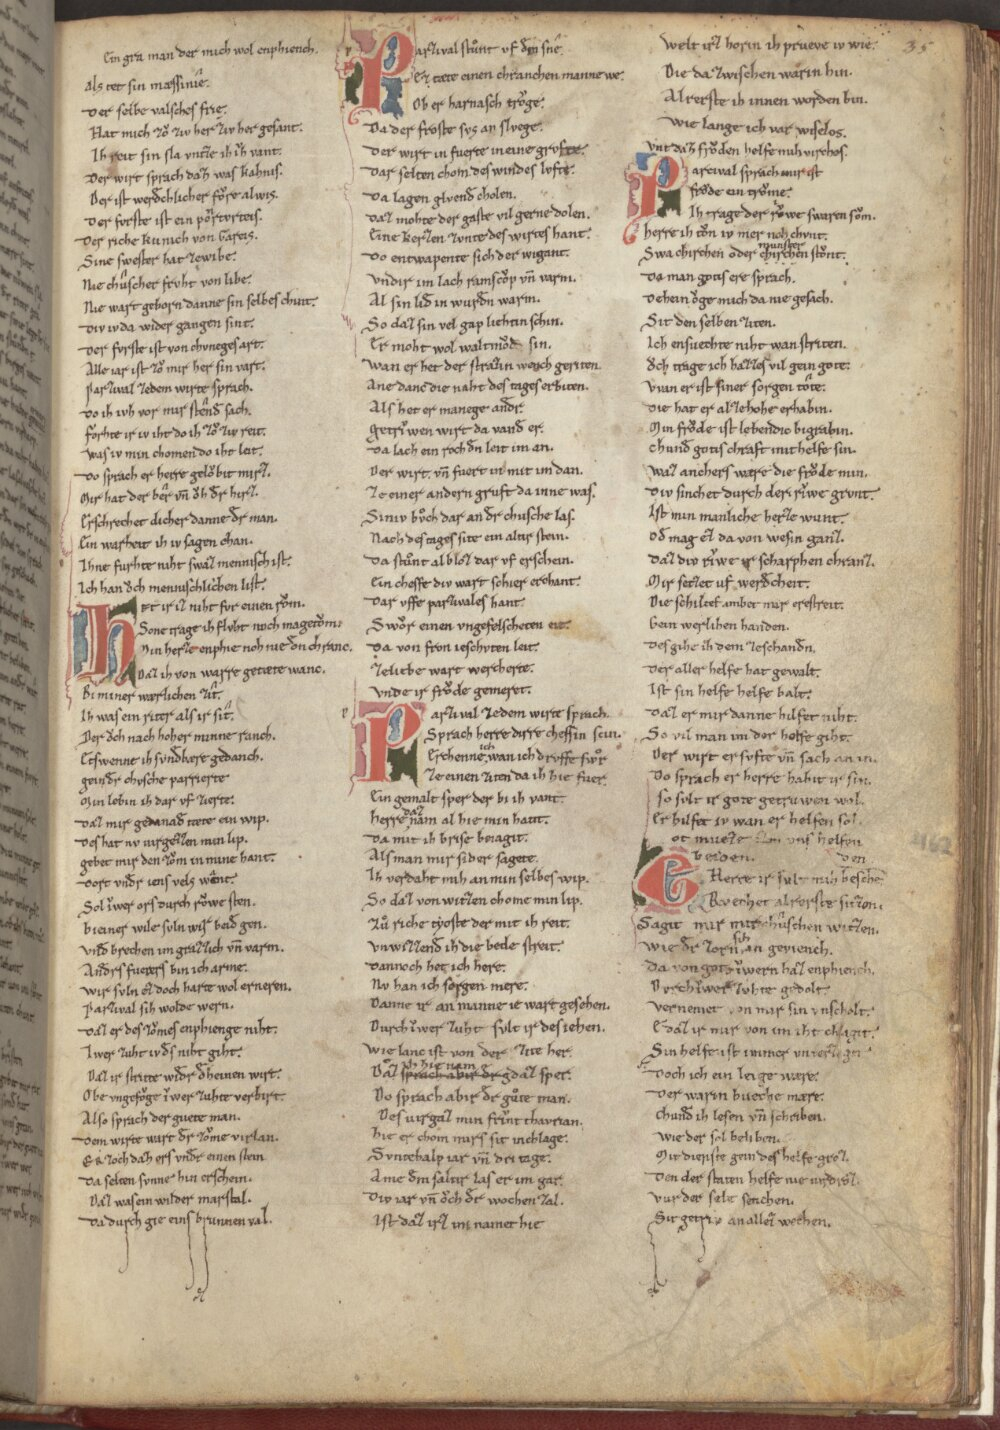 Ein gra man der mich wol enphiench.
Als tet sin mæssinie.
Der selbe valsches frie.
Hat mich zo ziv her ziv her gesant.
Ih reit sin sla vntze ih ih vant.
Der wirt sprach daz was kahnis.
Der ist werdchlicher fore al wis.
Der forste ist ein portvrteis.
Der riche kunich von Gareis.
Sine swester hat ze wibe.
Nie chuscher frvht von libe.
Nie wart geborn danne sin selbes chint.
Div iv da wider gangen sint.
Der fvrste ist von chvneges art.
Alle iar ist zo mir her sin vart.
Parzival zedem wirte sprach.
Do ih ivh vor mir stend sach.
forhte ir iv iht do ih zo ziv reit.
Was iv min chomen do iht leit.
Do sprach er herre gelobit mirz.
Mir hat der ber vn oh dr hirz.
Erschrechet dicher danne dr man.
Ein warheit ih iv sagen chan.
Ihne furhte niht swaz mennisch ist.
Ich han och mennischlichen list.
Het ir iz niht for einen rom.
Sone trage ih flvht noch magetom.
Min herze enphie noh nie dn chranc.
Daz ih von warre getæte wanc.
Bi miner wærlichen zit.
Ih was ein riter als ir sit.
Der och nach hoher minne ranch.
Etswenne ih svndbære gedanch.
gein dr chosche parrierte
Min lebin ih dar vf zierte.
Daz mir genanad tæte ein wip.
Des hat nv virgezzen min lip.
gebet mir den zom in mine hant.
Dort vndr iens vels went.
Sol iwer ors durch rowe sten.
bi einer wile svln wir beid gen.
Vnd brechen im grazlich vn varm.
Andrs fuoters bin ich arme.
Wir svln ez doch harte wol erneren.
Parzival sih wolde wern.
Daz er des zomes enphienge niht.
Iwer zuht ivds niht giht.
Daz ir strite widr dheinen wirt.
Obe vngefoge iwer zuhte verbirt.
Also sprach der guete man.
Dem wirte wart dr zome virlan.
Da selten svnne hin erschein.
Daz was ein wilder marstal.
Da durch gie eins brunnen val.
Parzival stunt vf dem sne.
Ez tæte einen chranchen manne we.
Ob er harnasch troge.
Da der froste svs an slvege.
Der wirt in fuerte in eine grvfte.
Dar selten chom des windes lvfte.
Da lagen glvend cholen.
Daz mohte der gaste vil gerne dolen.
Eine kerzen zvnte des wirtes hant.
Do entwapente sich der wigant.
Vndir im lach ramscop vn varm.
Al sin lid in wurdn warm.
So daz sin vel gap liehtin schin.
Er moht wol waltmod sin.
Wan er het der strazin wench geriten
Ane danc die naht des tages erbiten.
Als het er manege andr.
getriwen wirt da vand er.
Da lach ein rochdn leit im an.
Der wirt. vn fuert in mit im dan.
Ze einer andern gruft da inne was.
Siniv boch dar an dr chusche las.
Nach des tages site ein altir stein.
Da stunt al bloz dar vf erschein.
Ein cheffe div wart schier erchant.
Dar vffe parzivales hant.
Swor einen vngefelscheten eit.
Da von fron ieschvten leit.
Zeliebe wart wercherte.
Vnde ir frode gemeret.
Parzival zedem wirte sprach.
Sprach herre dirre cheffin scin.
Erchenne ich wan ich drvffe swor
Ze einen ziten da ih hie fuer
Ein gemalt sper der bi ih vant.
Herre daz nam al hie min hant.
Da mit ih brise beiagit.
Als man mir sider sagete.
Ih verdaht mih an min selbes wip.
So daz von witzen chome min lip.
Zu riche tyoste der mit ih reit.
Vnwizzend ih die bede streit.
Dannoch het ich here.
Nv han ich sorgen mere.
Danne ir an manne ie wart gesehen.
Durch iwer zuht svlt ir des iehen.
Wie lanc ist von der zite her.
Daz ih hie nam sprach abir dr g daz sper.
Do sprach abir dr gute man.
Des virgaz min frivnt thavrian.
Hie er chom mirs sit inchlage.
Svntehalp iar vn dri tage.
Ame dm saltir las er im gar.
Div iar vn och dr wochen zal.
Ist daz irz im namet hie
Welt irz horin ih prueve iv wie. 35
Die da zwischen warin hin.
Al rerste ih innen worden bin.
Wie lange ich var wiselos.
Vnt daz froden helfe mih virchos.
Parcival sprach mir ist
frode ein trome.
Ih trage der rowe swaren som.
Herre ih ton iv mer noh chvnt.
Swa chirchen oder munster chirchen stont.
Da man gotis ere sprach.
Dehein oge mich da nie gesach.
Sit den selben ziten.
Ich ensuechte niht wan striten.
Och trage ich hazzes vil gein gote.
Wan er ist siner sorgen tote.
Die hat er al zehohe erhabin.
Min frode ist lebendic bigrabin.
chund gotis chraft mit helfe sin.
Waz anchers wære die frode min.
Div sinchet durch der riwe grvnt.
Ist min manliche herze wunt.
Od mag ez da von wesin ganz.
Daz div riwe ir scharphen chranz.
Mir setzet vf werdcheit.
Die schiltef ambet mir erestreit.
Gein werlihen handen.
Des gihe ih dem ze schandn.
Der aller helfe hat gewalt.
Ist sin helfe helfe balt.
Daz er mir danne hilfet niht.
So vil man im der helfe giht.
Der wirt ersvfte vn sach an in.
Do sprach er herre habit ir sin.
So svlt ir gote getruwen wol.
Er hilfet iv wan er helfen sol.
ot mueze vns helfen
beiden.
Herre ir svlt mih bescheiden
Sagit mir mit chuschen witzen.
Wie dr zorn sih an geviench.
Da von got iwern haz enphiench.
Dvrch iwer zvhte gedolt.
Vernemet von mir sin vnscholt.
E daz ir mir von im iht chlagit.
Sin helfe ist immer vnverzagit
Doch ich ein leige wære.
Der warin bueche mære.
Chund ih lesen vn schriben.
Wie der sol beliben.
Mit dienste gein des helfe groz.
Den der stæten helfe nie virdroz.
Vur der sele senchen.
Sit getriv an allez wechen.